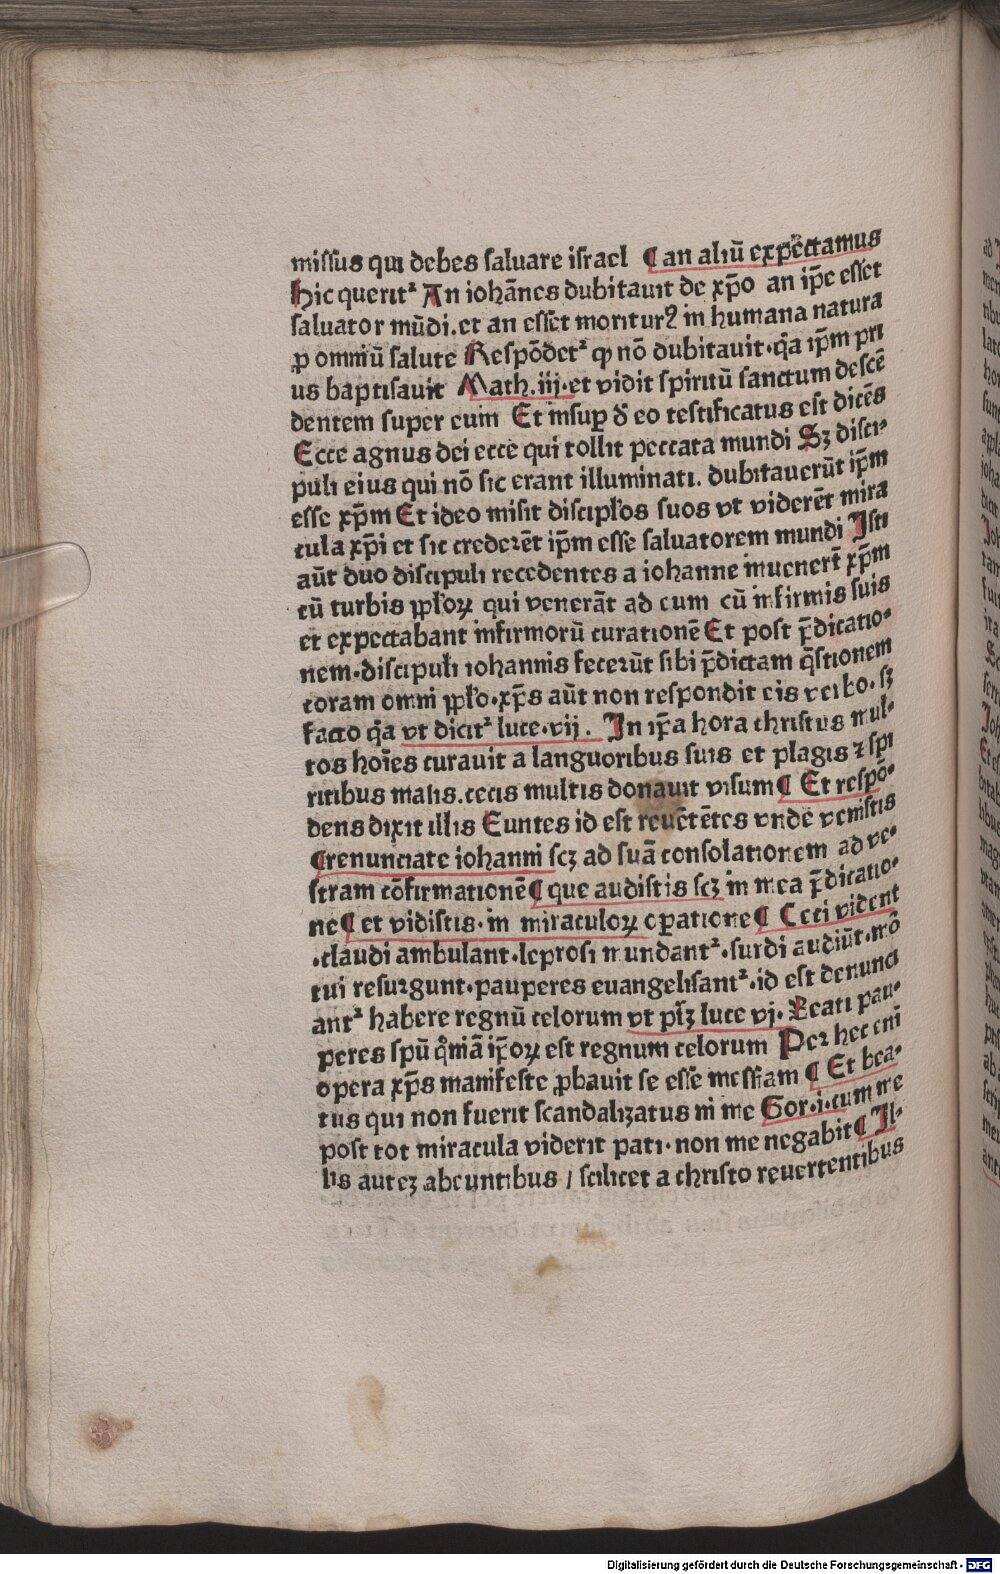 missus qui debes saluare israel ¶ an aliū expectamus
Hic querit᷑ An iohānes dubitauit de xp̄o an ip̄e esset
saluator mūdi. et an esset moriturꝰ in humana natura
ꝓ omniū salute Respōdet᷑ ꝙ nō dubitauit. q̄a ip̄m pri
us baptisauit Math. iij. et vidit spiritū sanctum descē
dentem super eum Et insuꝑ đ eo testificatus est dicēs
Ecce agnus dei ecce qui tollit peccata mundi Sꝫ disci⸗
puli eius qui nō sic erant illuminati. dubitauerūt ip̄m
esse xp̄m Et ideo misit discipłos suos vt viderēt mira
cula xp̄i et sic crederēt ip̄m esse saluatorem mundi Isti
aūt duo discipuli recedentes a iohanne inuenert̄ xp̄m
cū turbis pp̄łoꝝ qui venerāt ad eum cū infirmis suis
et expectabant infirmorū curationē Et post p̄dicatio⸗
nem. discipuli iohannis fecerūt sibi p̄dictam q̄stionem
coram omni pp̄ło. xp̄s aūt non respondit eis verbo. sꝫ
facto q̄a vt dicit᷑ luce. vij. In ip̄a hora christus mul⸗
tos hoīes curauit a languoribus suis et plagis ⁊ spi
ritibus malis. cecis multis donauit visum ¶ Et respō⸗
dens dixit illis Euntes id est reuētētes vnde venistis
¶ renunciate iohanni scꝫ ad suā consolationem ad ve⸗
stram cōfirmationē ¶ que audistis scꝫ in mea p̄dicatio⸗
ne ¶ et vidistis. in miraculoꝝ oꝑatione ¶ Ceci vident
.claudi ambulant. leprosi mundant᷑. surdi audiūt. mō
tui resurgunt. pauperes euangelisant᷑. id est denunci
ant᷑ habere regnū celorum vt ptꝫ luce vj. Beati pau⸗
peres spū qm̄iā ip̄oꝝ est regnum celorum Per hec eni
opera xp̄s manifeste ꝓbauit se esse messiam ¶ Et bea⸗
tus qui non fuerit scandalizatus in me Gor. i. cum me
post tot miracula viderit pati. non me negabit ¶ Il⸗
lis autez abeuntibus / scilicet a christo reuertentibus
Digitalisierung gefördert durch die Deutsche Forschungsgemeinschaft - DFG